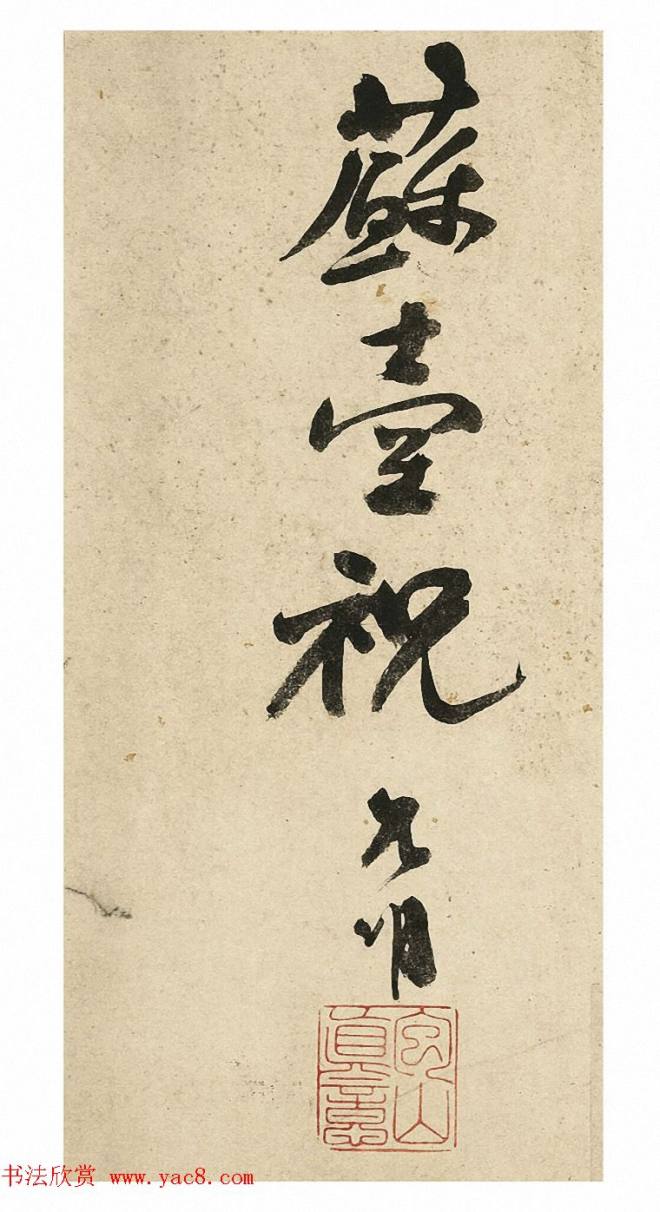 蘇臺祝允明
书法欣赏 www.yac8.com